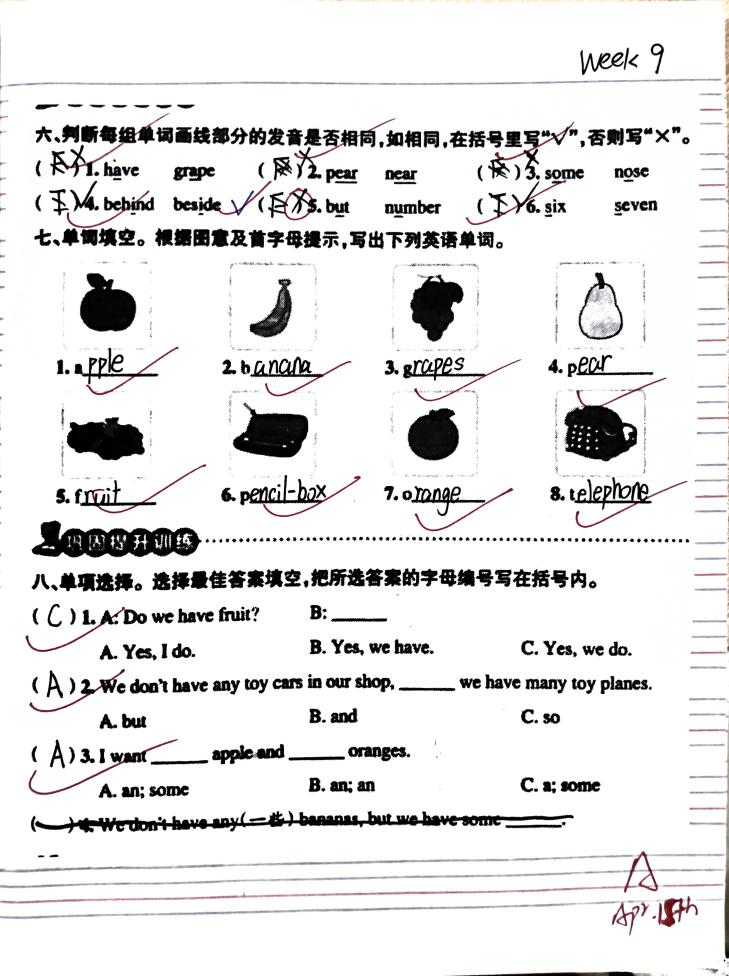 Week 9
六、判断每组单词画线部分的发音是否相同,如相同,在括号里写“√”,否则写“×”。
( × ) 1. have grape ( × ) 2. pear near ( × ) 3. some nose
( ) 4. behind beside ( ) 5. but number ( ) 6. six seven
七、单词填空。根据图意及首字母提示,写出下列英语单词。
1. apple 2. banana 3. grapes 4. pear
5. fruit 6. pencil-box 7. orange 8. telephone
巩固提升训练
八、单项选择。选择最佳答案填空,把所选答案的字母编号写在括号内。
( C ) 1. A: Do we have fruit? B: ______
A. Yes, I do. B. Yes, we have. C. Yes, we do.
( A ) 2. We don't have any toy cars in our shop, ______ we have many toy planes.
A. but B. and C. so
( A ) 3. I want ______ apple and ______ oranges.
A. an; some B. an; an C. a; some
( ) 4. We don't have any(一些) bananas, but we have some ______.
A
Apr. 15th